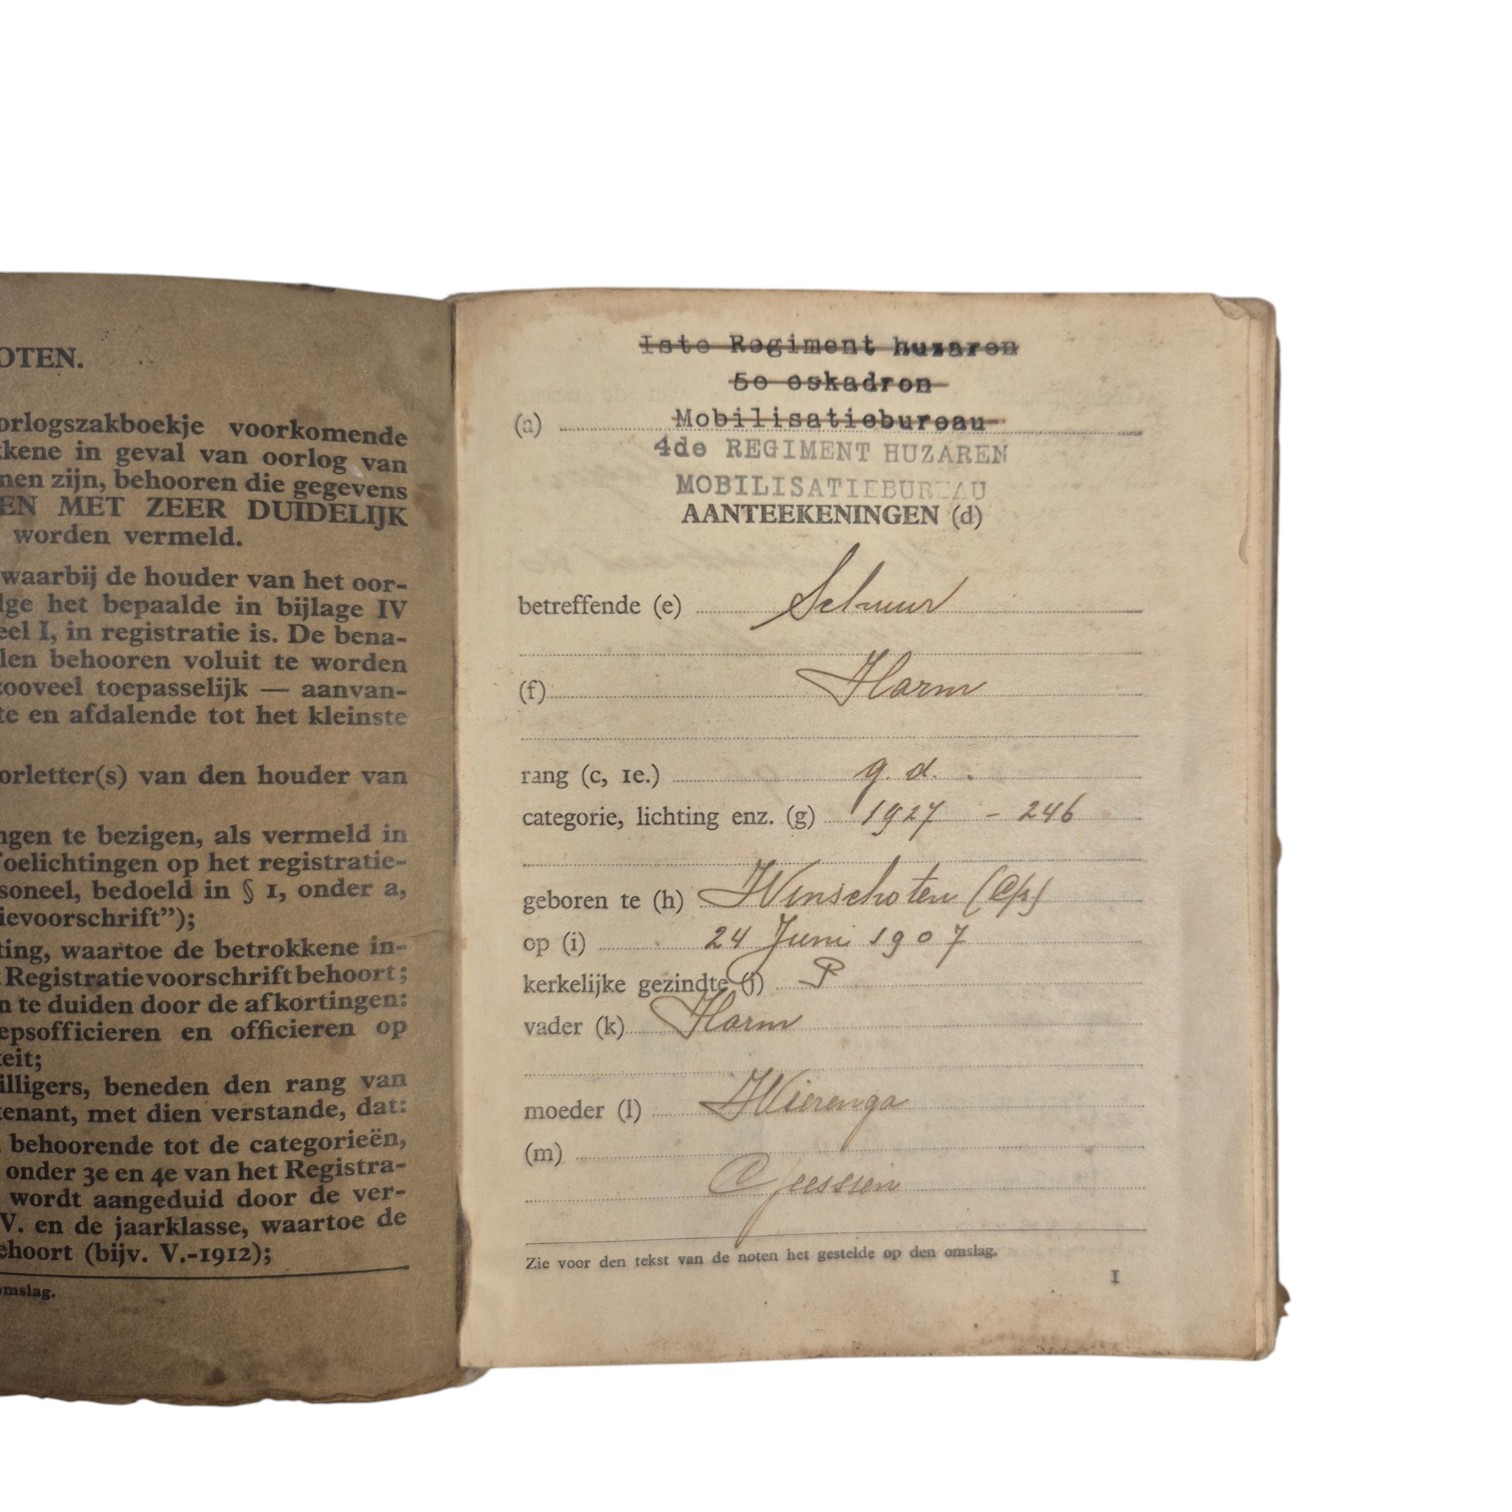 OTEN.
orlogszakboekje voorkomende
kene in geval van oorlog van
nen zijn, behooren die gegevens
EN MET ZEER DUIDELIJK
worden vermeld.
waarbij de houder van het oor-
lge het bepaalde in bijlage IV
eel I, in registratie is. De bena-
len behooren voluit te worden
zooveel toepasselijk — aanvan-
te en afdalende tot het kleinste
orletter(s) van den houder van
ngen te bezigen, als vermeld in
Toelichtingen op het registratie-
soneel, bedoeld in § 1, onder a,
ievoorschrift");
ting, waartoe de betrokkene in-
t Registratievoorschrift behoort;
n te duiden door de afkortingen:
epsofficieren en officieren op
eit;
illigers, beneden den rang van
tenant, met dien verstande, dat:
behoorende tot de categorieën,
onder 3e en 4e van het Registra-
wordt aangeduid door de ver-
V. en de jaarklasse, waartoe de
ehoort (bijv. V.-1912);
omslag.
Iste Regiment huzaren
5e eskadron
(a) Mobilisatiebureau
4de REGIMENT HUZAREN
MOBILISATIEBUREAU
AANTEEKENINGEN (d)
betreffende (e) Schuur
(f) Harm
rang (c, 1e.) g. d.
categorie, lichting enz. (g) 1927 - 246
geboren te (h) Winschoten
op (i) 24 Juni 1907
kerkelijke gezindte (j) P
vader (k) Harm
moeder (l) Wierenga
(m)
Geessien
Zie voor den tekst van de noten het gestelde op den omslag.
1